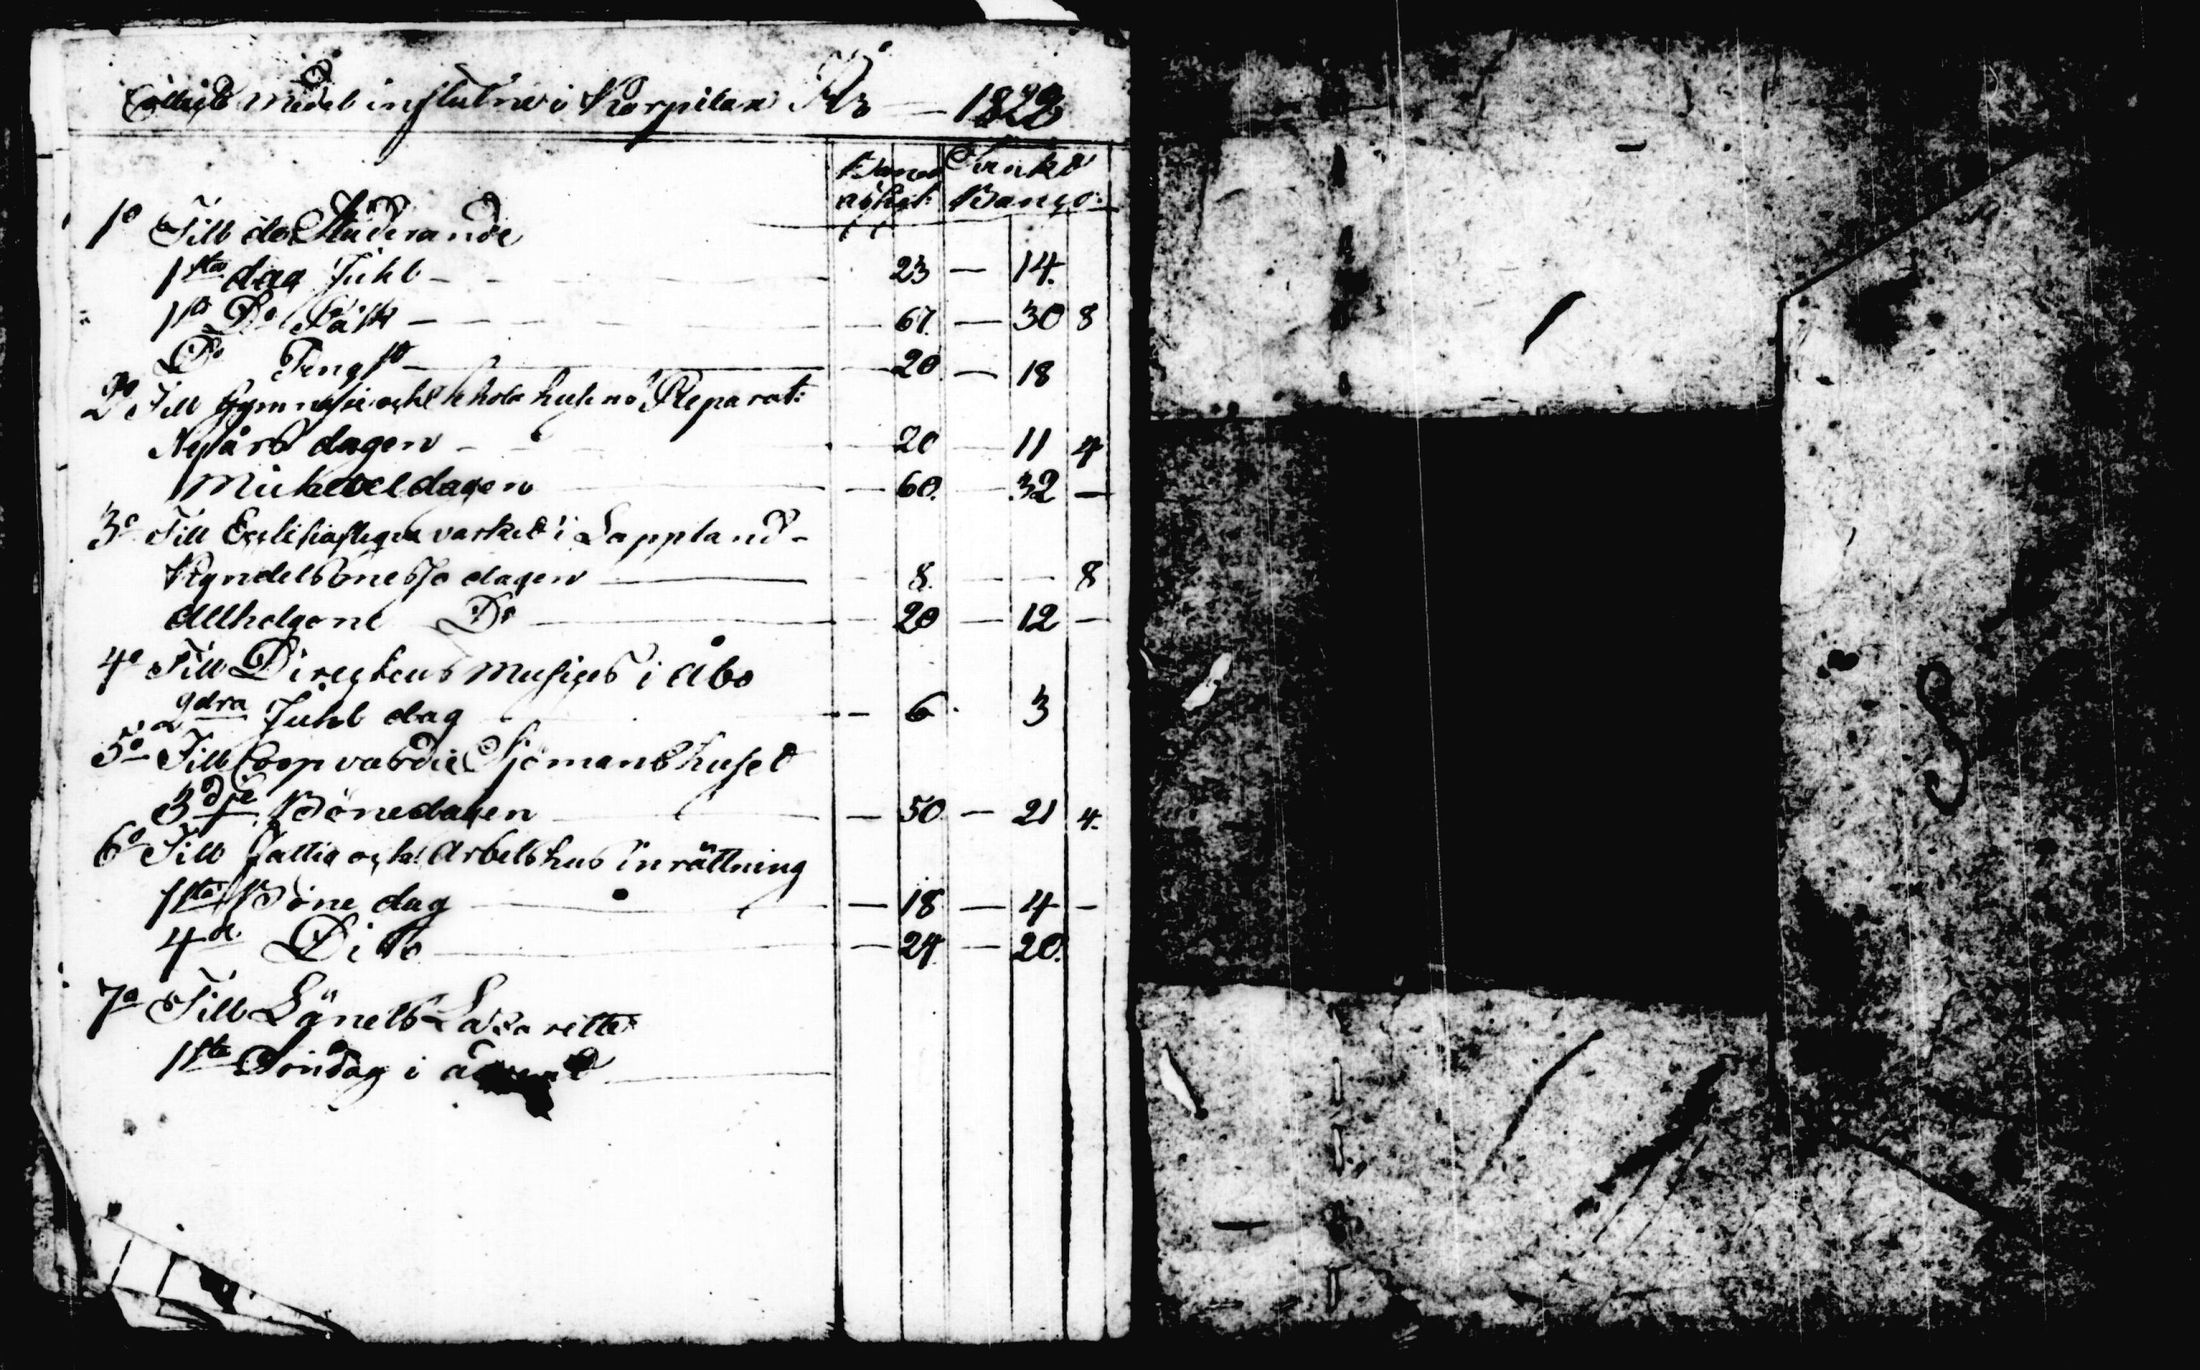 Collect Medel influtne i Korpilax — 1829
Till de Studerande
1sta dag Juhl — 23 — 14.
1sta Do Påsk — 67. — 30 8
Do Pengst — 20 — 18
2o Till Gymnasie och Skola husens Reparat:
Nyårs dagen — 20 — 11 4
Mickaelsdagen — 60. — 32 —
3o Till Ecclesiastique varket i Lappland
Kyndelsmesso dagen — 8. — — 8
Allhelgone Do — 20 — 12 —
4o Till Direckteus Musices i Åbo
2dra Juhl dag — 6. 3
5o Till Coopvardie Sjömanshuset
3dje Bönedagen — 50 — 21 4.
6o Till Fattig och Arbetshus inrättning
1sta Böne dag — 18 — 4 —
4de Dito — 24 — 20.
7o Till Länets Lazarettet
1sta Söndag i